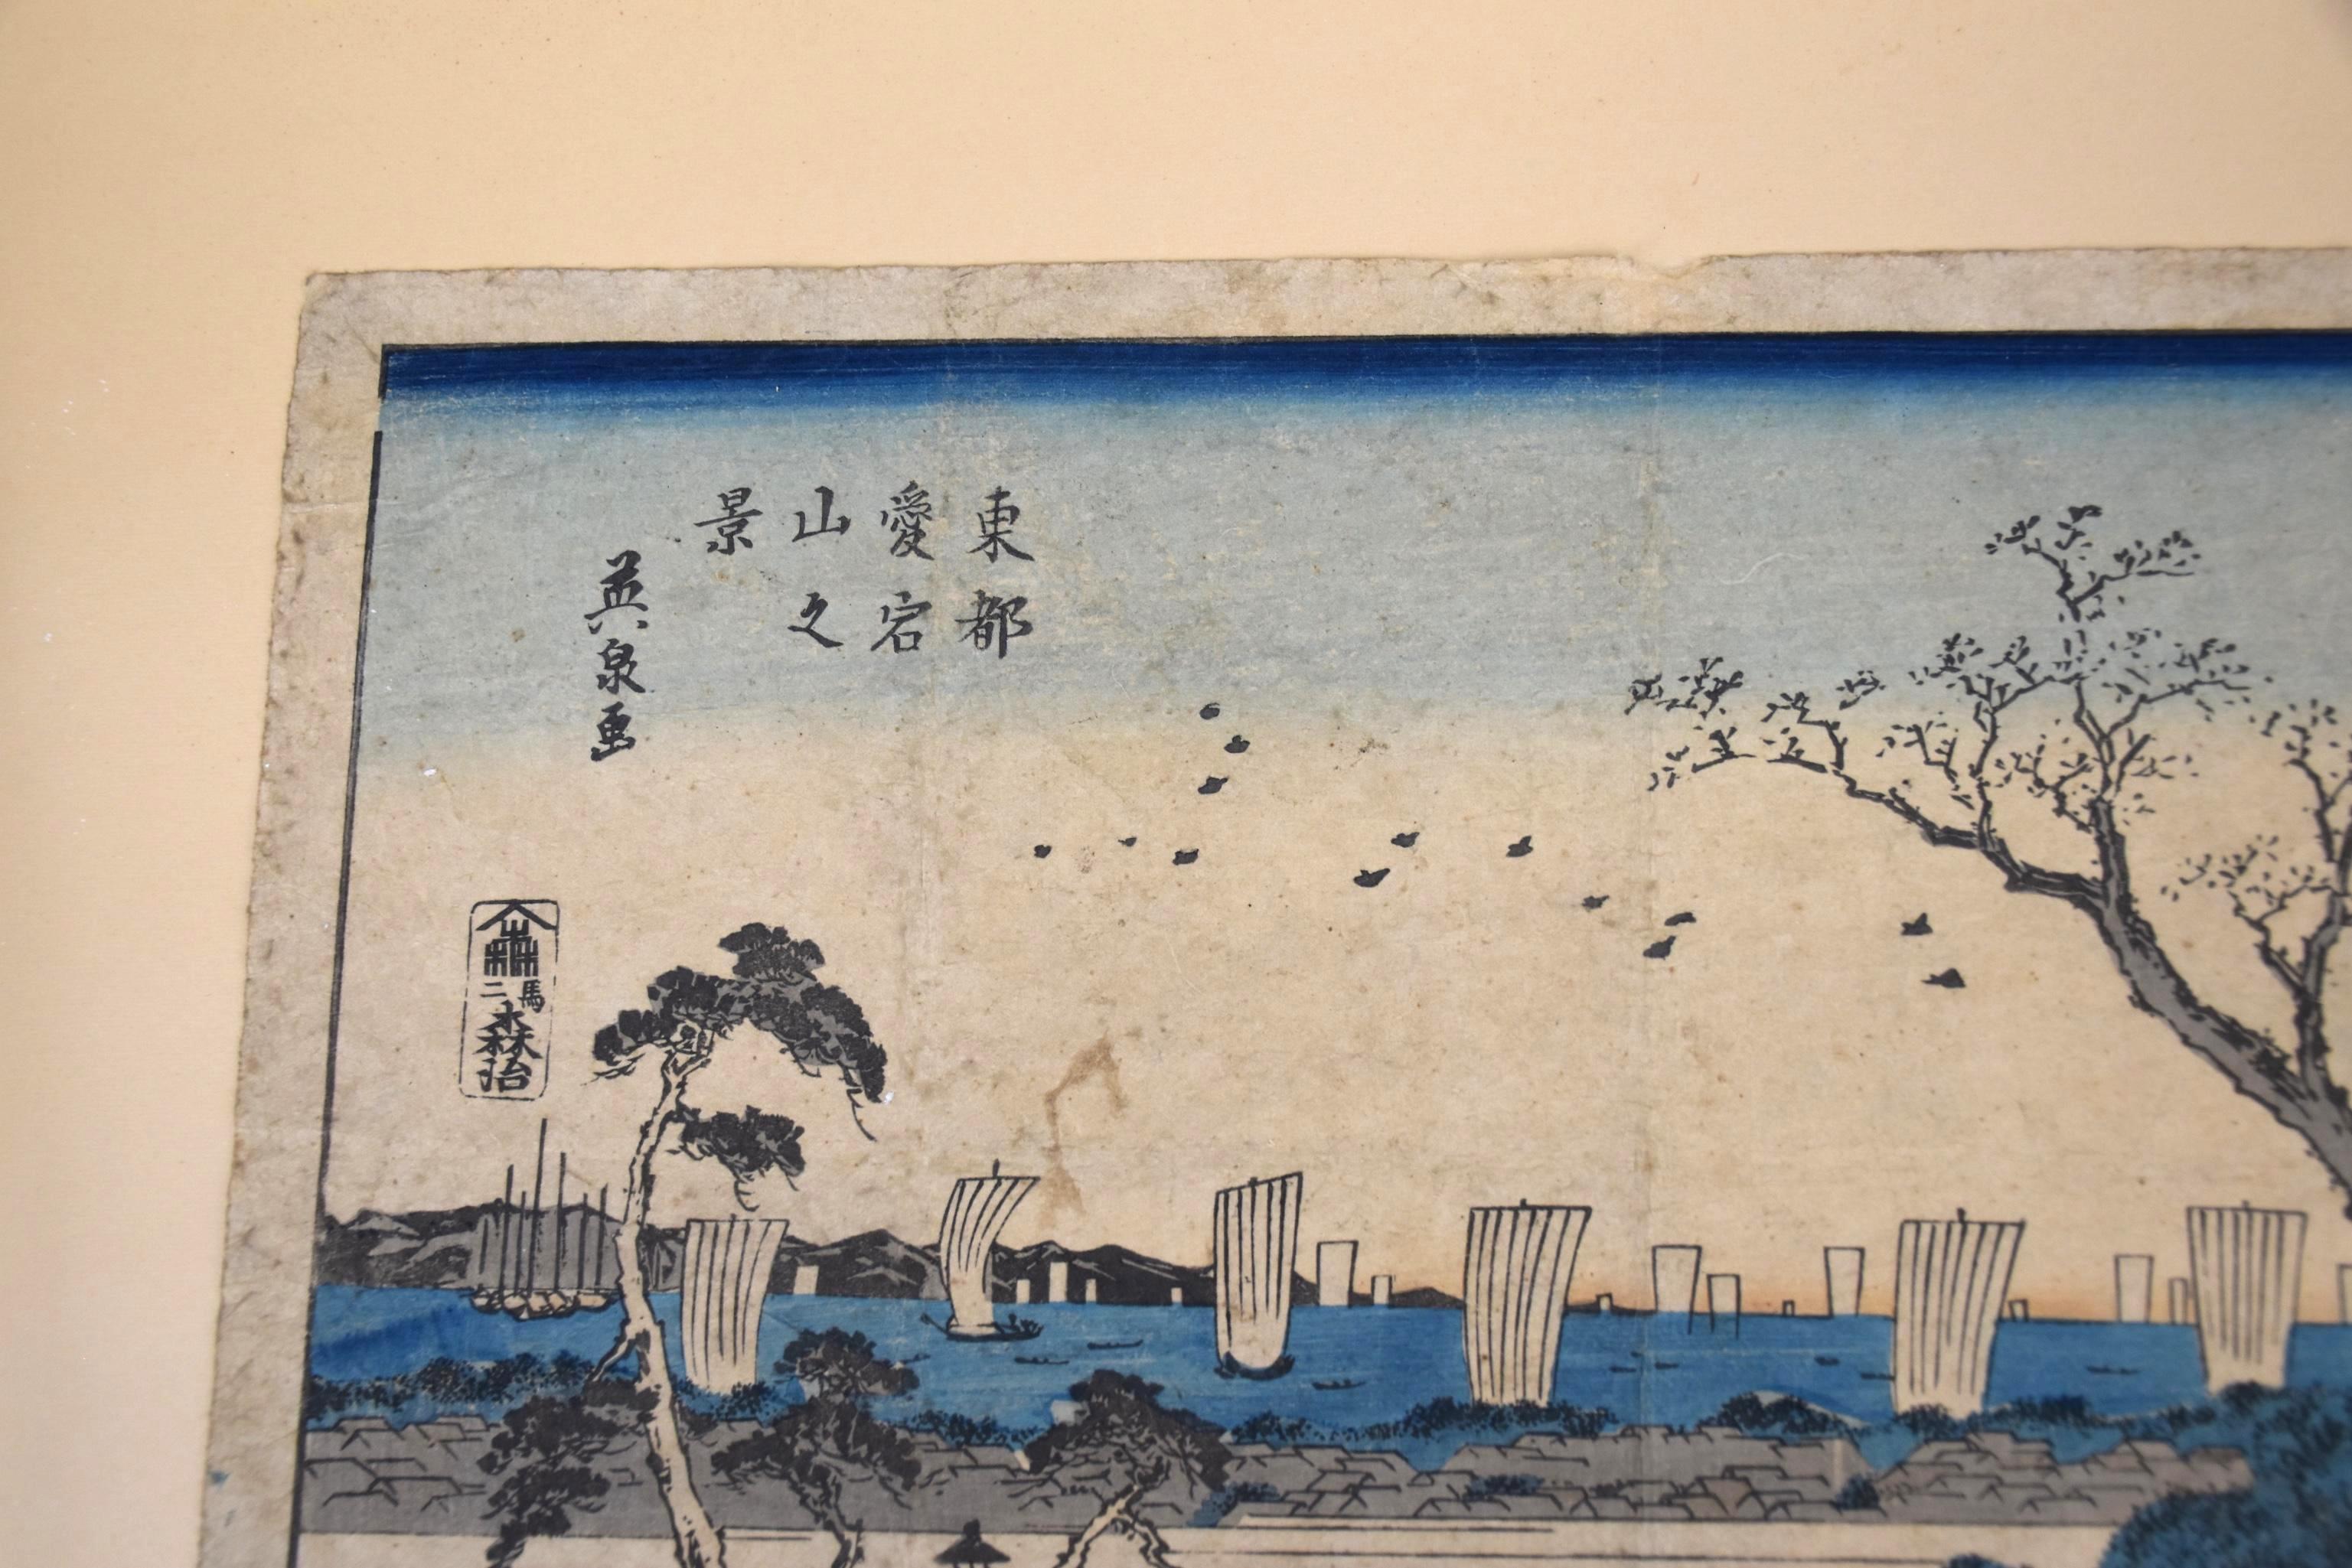 東都
愛宕
山之
景
英泉画
馬二
森治